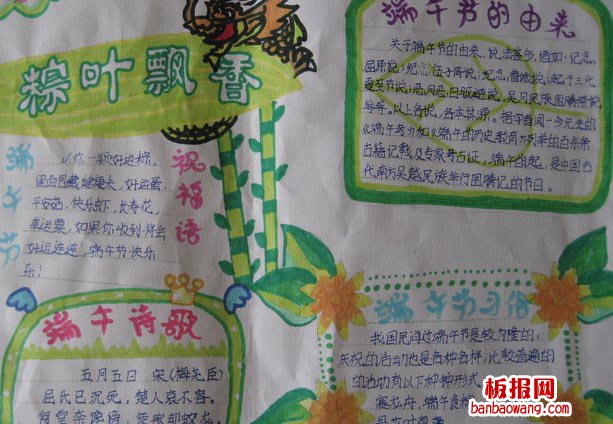 粽叶飘香
端午节
祝福语
送你一颗好运粽,
里面包藏健康大,好运蛋,
平安菇,快乐虾,长寿花,
幸运粟,如果你收到将会
好运连连,端午节快乐
乐!
端午诗歌
五月五日 宋(梅尧臣)
屈氏已沉死,楚人哀不容。
何尝奈谗谤,
端午节的由来
关于端午节的由来,说法甚多,诸如:纪念
屈原说;纪念伍子胥说;纪念曹娥说;起于三代
夏至节说;恶月恶日驱避说,吴月民族图腾祭说
等等。以上各说,各本其源。据学者闻一多先生的
《端午考》和《端午的历史教育》列举的百余条
古籍记载及专家考古证,端午的起,是中国古
代南方吴越民族举行图腾记的节日。
端午节习俗
我国民间过端午节是较为隆的,
庆祝的活动也是各种各样,比较普遍的
的活动有以下种种形式
赛龙舟、端午食粽
板报网
banbaowang.com